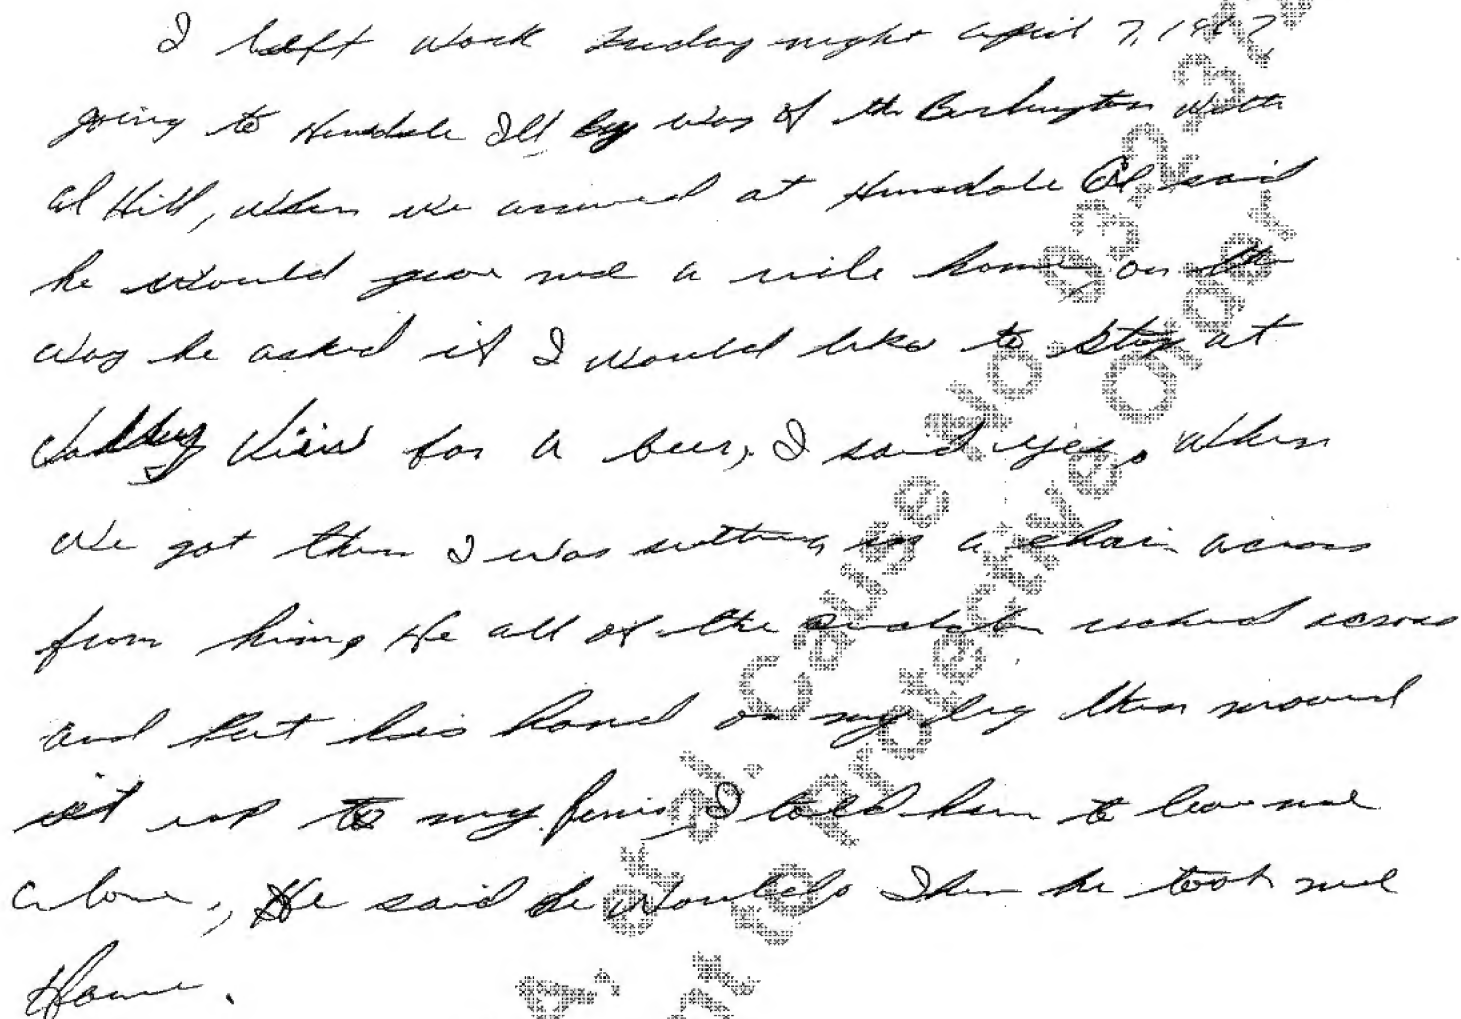 I left work Friday night April 7, 1967
going to Hinsdale Ill by way of the Burlington with
Al Hill, when we arrived at Hinsdale Al said
he would give me a ride home, on the
way he asked if I would like to stop at
Valley View for a beer, I said yes, when
we got there I was sitting in a chair across
from him, He all of the sudden reached across
and put his hand on my leg then moved
it up to my penis, I told him to leave me
alone., He said he would, Then he took me
Home.
Cause No. 
Protective Order
et al.